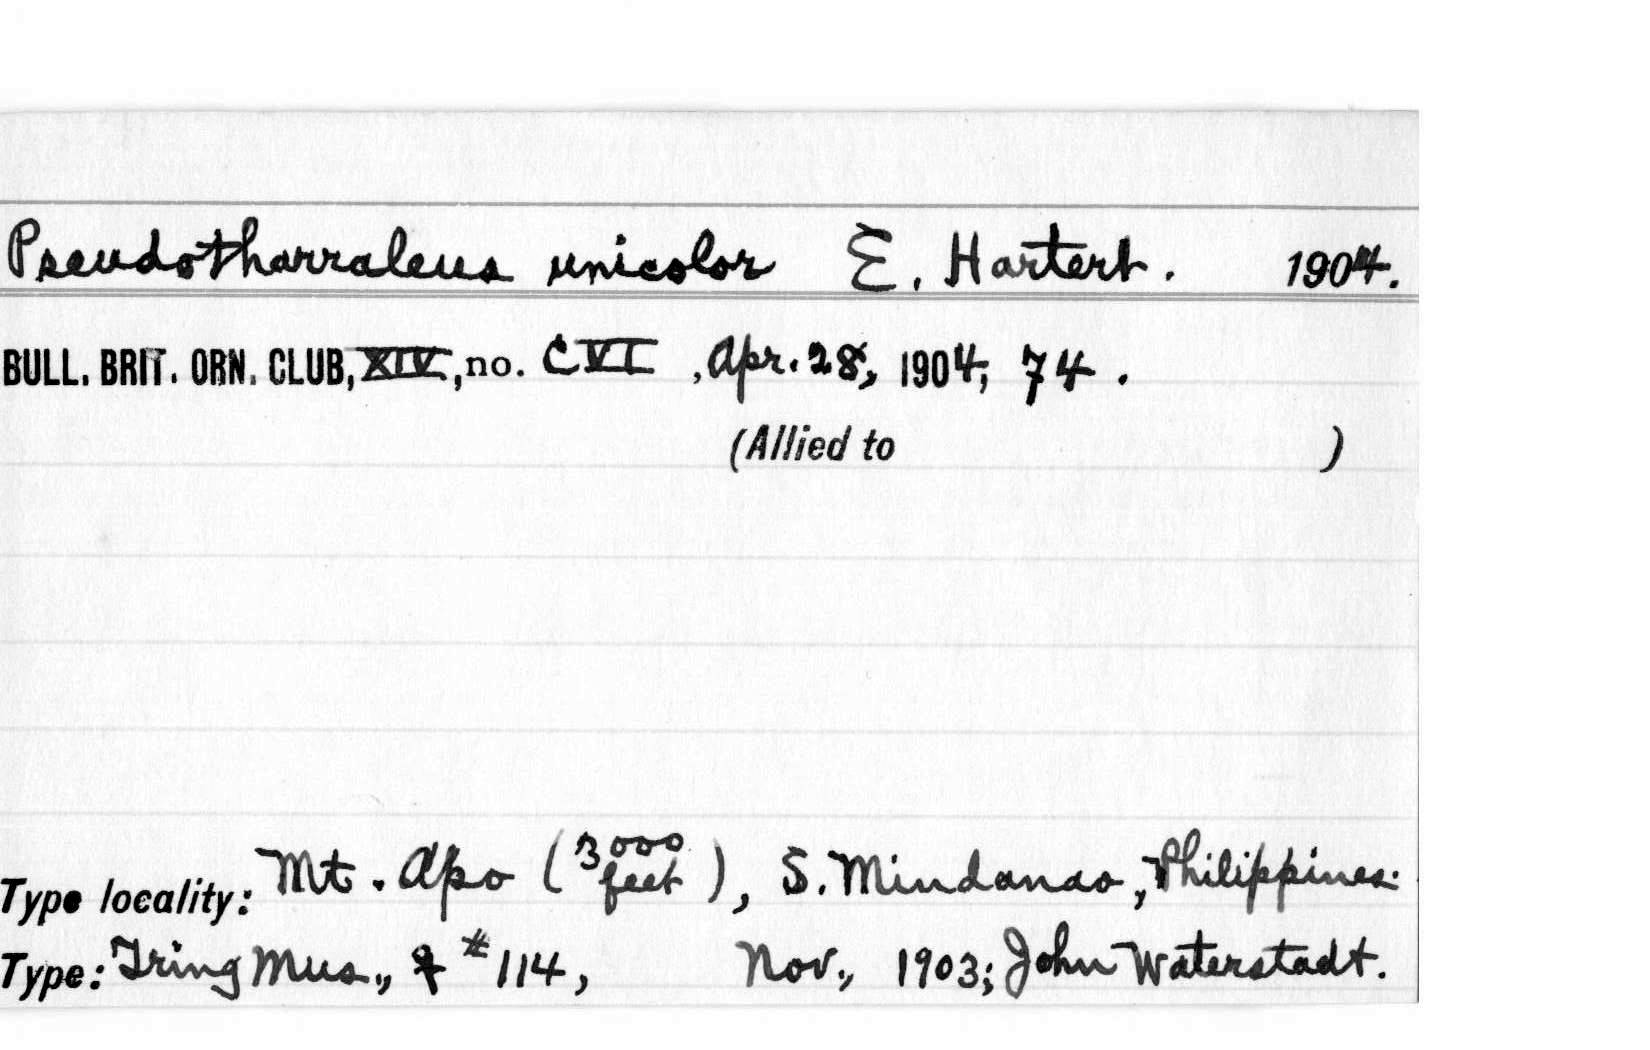 Pseudotharraleus unicolor E. Hartert. 1904.
BULL. BRIT. ORN. CLUB, XIV, no. CVI, Apr. 28, 1904, 74.
(Allied to )
Type locality: Mt. Apo (3000 feet), S. Mindanao, Philippines.
Type: Tring Mus., ♀ #114, Nov., 1903; John Waterstadt.